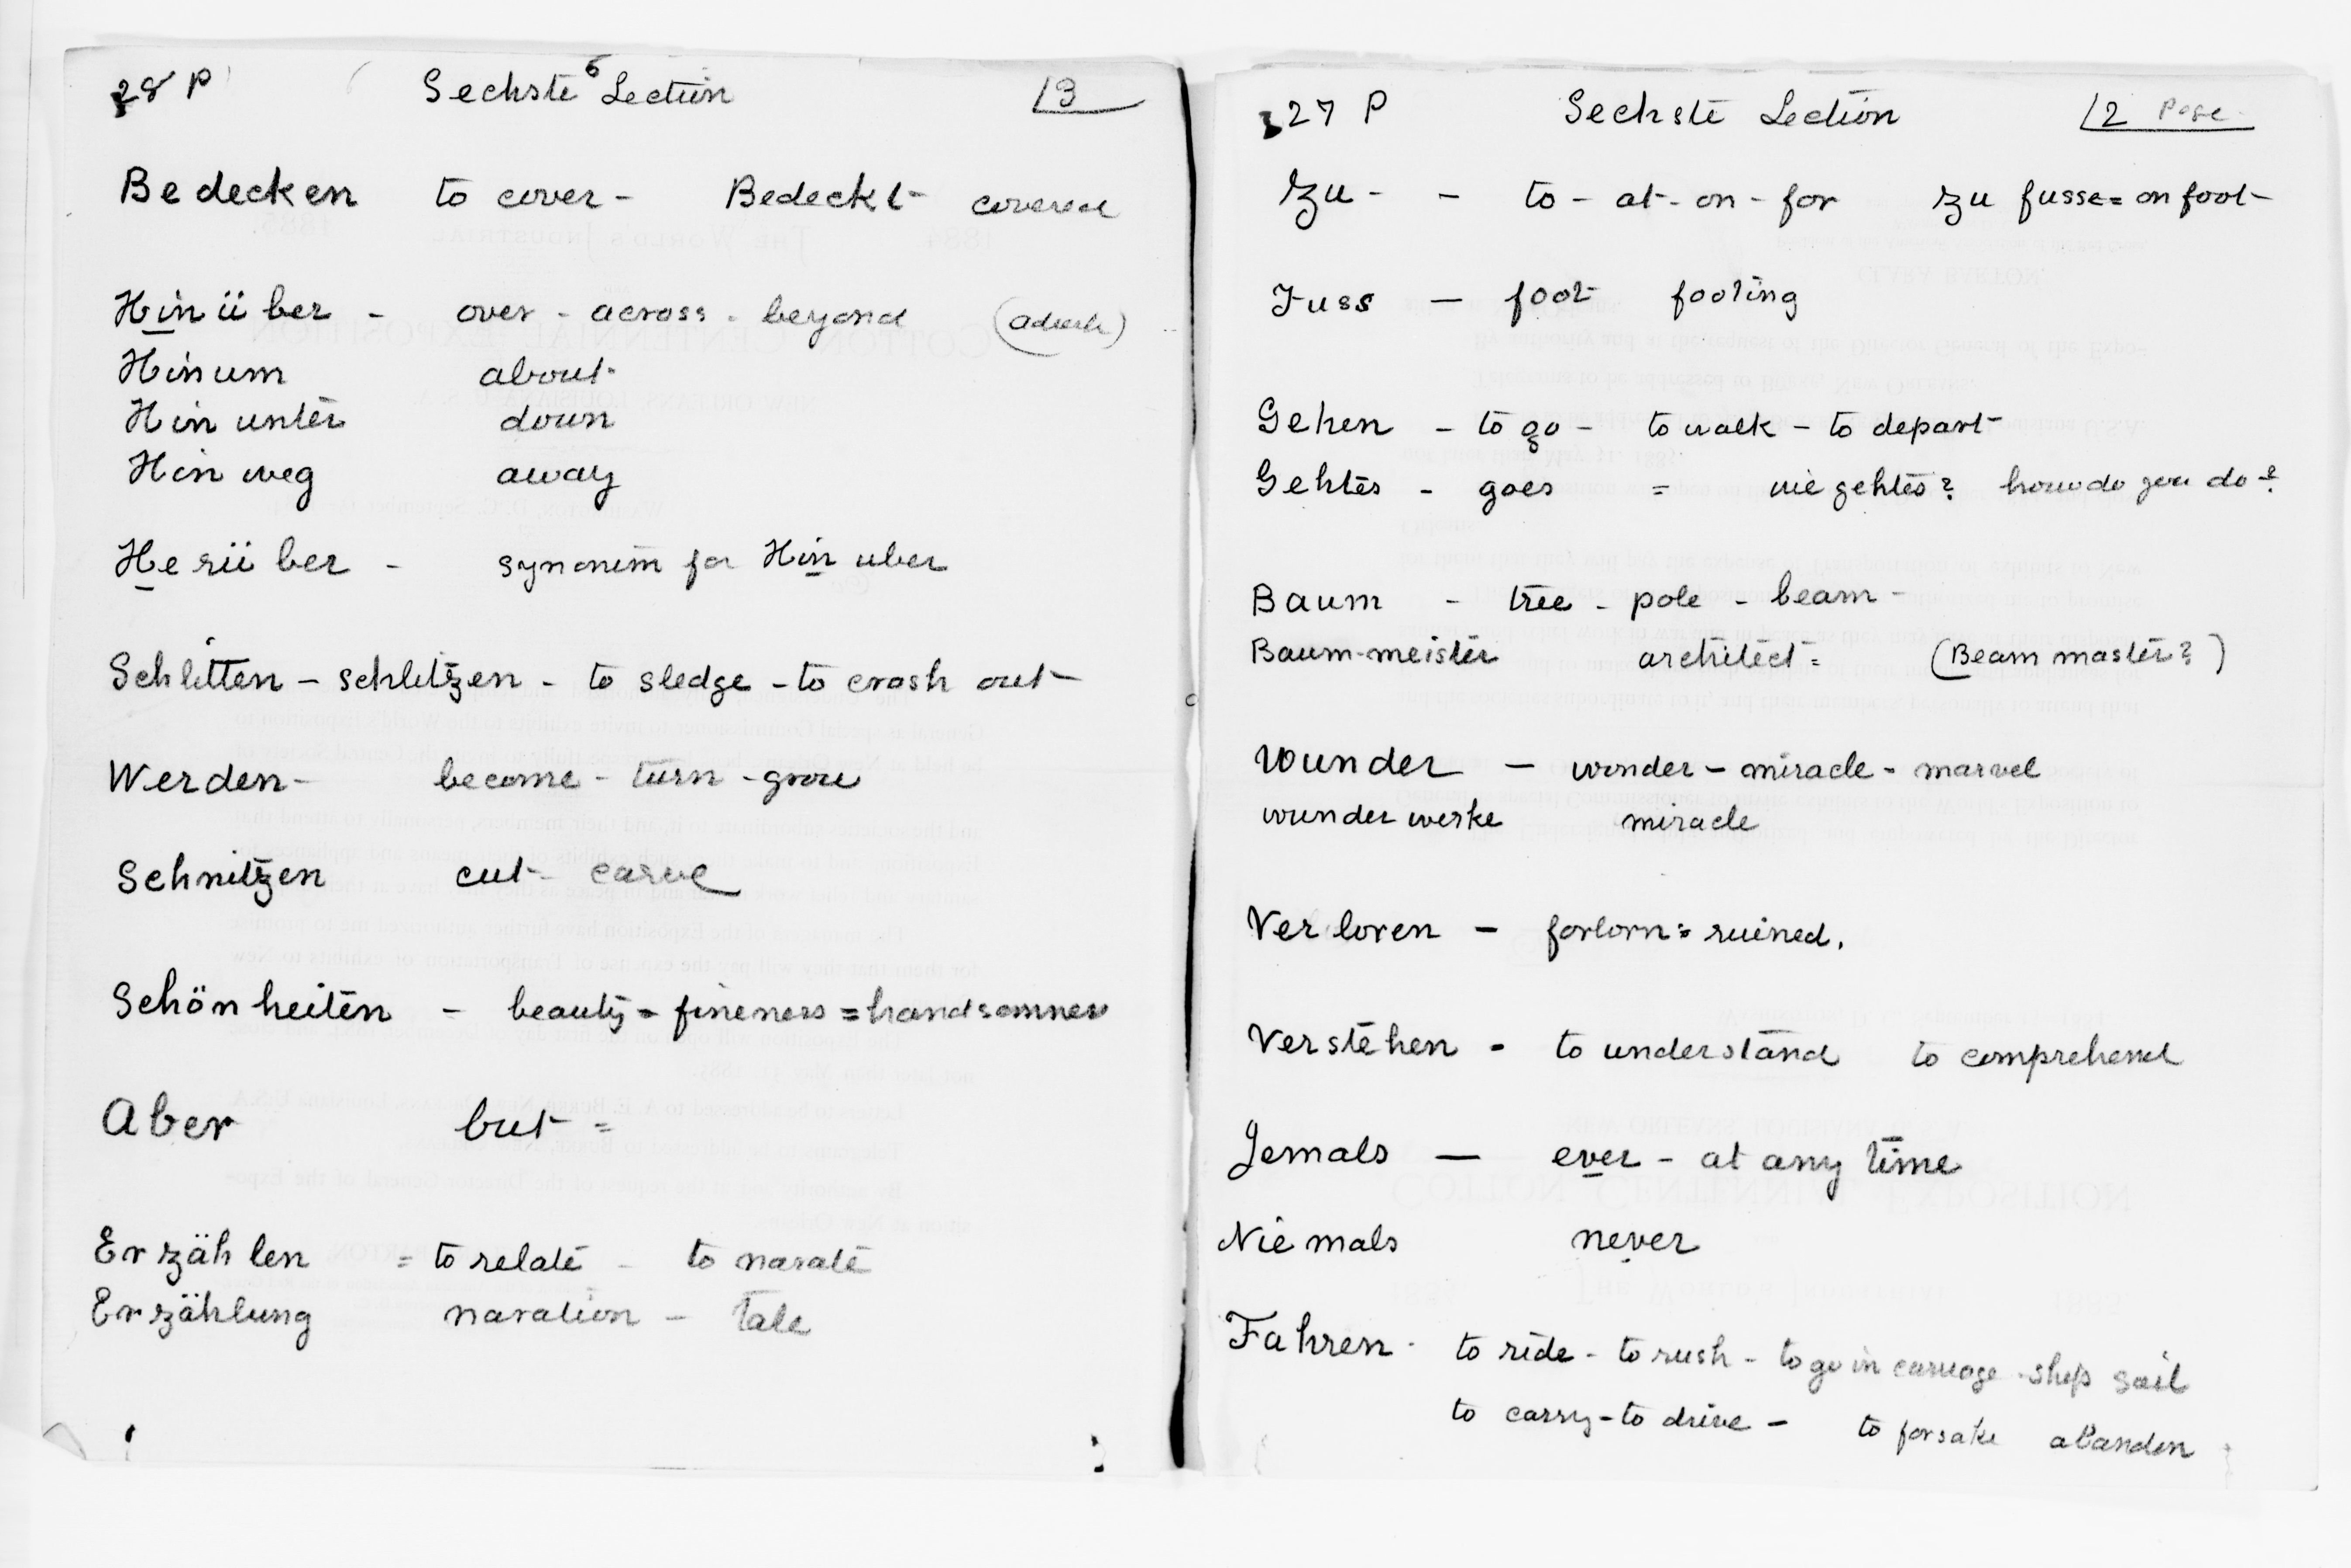 28 P Sechste 6 Lection 3
Bedecken to cover - Bedeckt - covered
Hinüber - over - across - beyond (adverb)
Hinum about
Hin unter down
Hin weg away
Herüber - synonim for Hin uber
Schlitten - schlitzen - to sledge - to crash out
Werden - become - turn - grow
Schnitzen cut - carve
Schönheiten - beauty = fineness = handsomness
Aber but =
Erzählen = to relate - to narate
Erzählung naration - Tale
27 P Sechste Lection 2 Page
Zu - - to - at - on - for Zu fusse = on foot
Fuss - foot footing
Gehen - to go - to walk - to depart
Gehtes - goes = wie gehtes? how do you do?
Baum - tree - pole - beam -
Baum-meister architect = (Beam master?)
Wunder - wonder - miracle - marvel
wunder werke miracle
Verloren - forlorn = ruined.
Verstehen - to understand to comprehend
Jemals - ever - at any time
Niemals never
Fahren - to ride - to rush - to go in carriage - ship sail
to carry - to drive - to forsake abandon